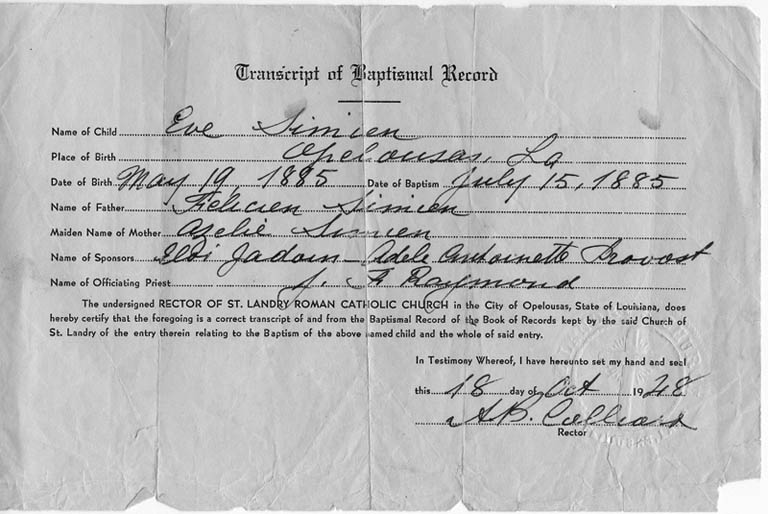 Transcript of Baptismal Record
Name of Child Eve Simien
Place of Birth Opelousas, La
Date of Birth May 19 1885 Date of Baptism July 15, 1885
Name of Father Felicien Simien
Maiden Name of Mother Azelie Simien
Name of Sponsors Adele Antoinette Provost
Name of Officiating Priest J. F Raymond
The undersigned RECTOR OF ST. LANDRY ROMAN CATHOLIC CHURCH in the City of Opelousas, State of Louisiana, does
hereby certify that the foregoing is a correct transcript of and from the Baptismal Record of the Book of Records kept by the said Church of
St. Landry of the entry therein relating to the Baptism of the above named child and the whole of said entry.
In Testimony Whereof, I have hereunto set my hand and seal
this 18 day of Oct 1948
A.B. Colliard
Rector